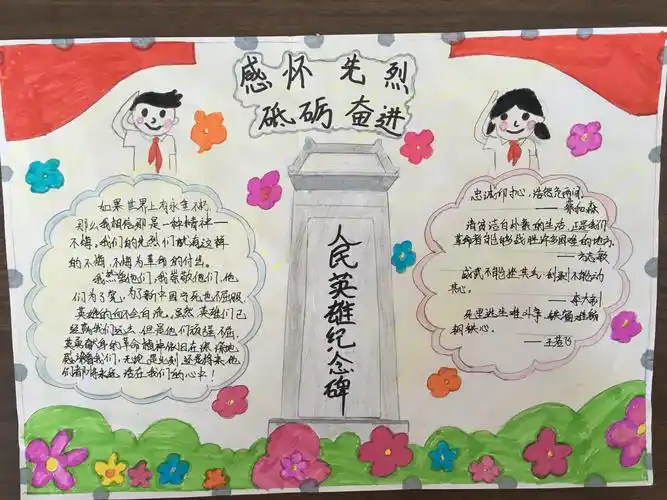 感怀先烈
砥砺奋进
如果世界上有永垂不朽
那么我相信那是一种精神——
不悔,我们的先烈们就有这样
的不悔,不悔为革命的付出。
我热爱他们,我崇敬他们,他
们为了党,为了新中国宁死也不屈服,
英雄的血不会白流。虽然英雄们已
经离我们远去,但是他们顽强倔
英勇献身的革命精神依旧在深深地
感染着我们,无论是此刻还是将来,他
们都将永远活在我们的心中!
人民英雄纪念碑
忠诚印寸心,浩然充两间。
——蔡和森
清贫洁白朴素的生活,正是我们
革命者能够战胜许多困难的地方。
——方志敏
威武不能挫其气,利禄不能动
其心。
——李大钊
死里逃生唯斗争,铁窗难锁
钢铁心。
——王若飞